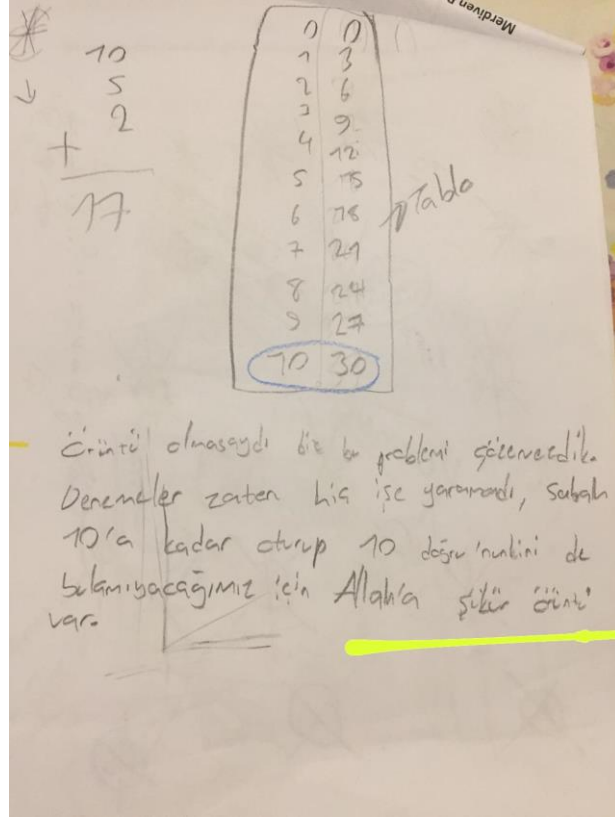 Merdiven
10
5
2
+
17
0 0
1 3
2 6
3 9
4 12
5 15
6 18
7 21
8 24
9 27
10 30
Tablo
Örüntü olmasaydı biz bu problemi çözemezdik.
Denemeler zaten hiç işe yaramadı, sabah
10'a kadar oturup 10 doğru'nunkini de
bulamıyacağımız için Allah'a şükür örüntü
var.